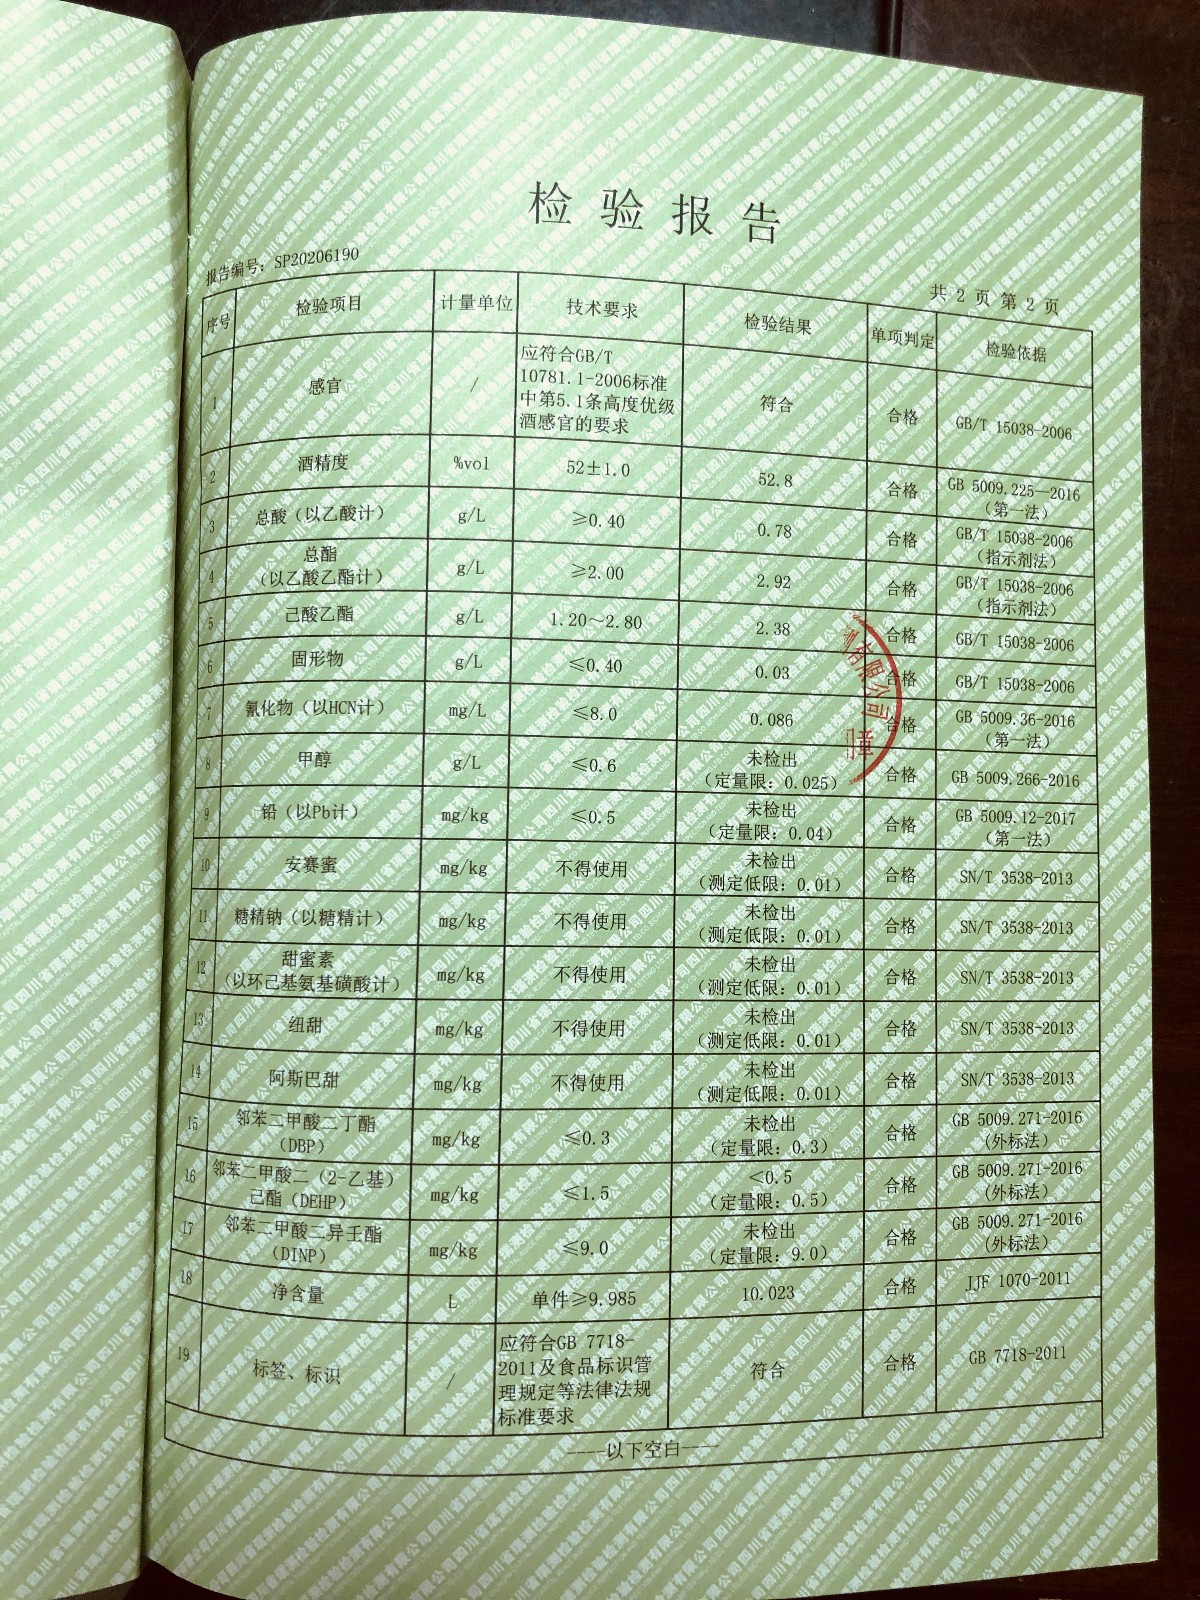 检验报告
报告编号：SP20206190
共 2 页 第 2 页
序号 检验项目 计量单位 技术要求 检验结果 单项判定 检验依据
1 感官 / 应符合GB/T 10781.1-2006标准中第5.1条高度优级酒感官的要求 符合 合格 GB/T 15038-2006
2 酒精度 %vol 52±1.0 52.8 合格 GB 5009.225—2016（第一法）
3 总酸（以乙酸计） g/L ≥0.40 0.78 合格 GB/T 15038-2006（指示剂法）
4 总酯（以乙酸乙酯计） g/L ≥2.00 2.92 合格 GB/T 15038-2006（指示剂法）
5 己酸乙酯 g/L 1.20～2.80 2.38 合格 GB/T 15038-2006
6 固形物 g/L ≤0.40 0.03 合格 GB/T 15038-2006
7 氰化物（以HCN计） mg/L ≤8.0 0.086 合格 GB 5009.36-2016（第一法）
8 甲醇 g/L ≤0.6 未检出（定量限：0.025） 合格 GB 5009.266-2016
9 铅（以Pb计） mg/kg ≤0.5 未检出（定量限：0.04） 合格 GB 5009.12-2017（第一法）
10 安赛蜜 mg/kg 不得使用 未检出（测定低限：0.01） 合格 SN/T 3538-2013
11 糖精钠（以糖精计） mg/kg 不得使用 未检出（测定低限：0.01） 合格 SN/T 3538-2013
12 甜蜜素（以环己基氨基磺酸计） mg/kg 不得使用 未检出（测定低限：0.01） 合格 SN/T 3538-2013
13 纽甜 mg/kg 不得使用 未检出（测定低限：0.01） 合格 SN/T 3538-2013
14 阿斯巴甜 mg/kg 不得使用 未检出（测定低限：0.01） 合格 SN/T 3538-2013
15 邻苯二甲酸二丁酯（DBP） mg/kg ≤0.3 未检出（定量限：0.3） 合格 GB 5009.271-2016（外标法）
16 邻苯二甲酸二（2-乙基）己酯（DEHP） mg/kg ≤1.5 <0.5（定量限：0.5） 合格 GB 5009.271-2016（外标法）
17 邻苯二甲酸二异壬酯（DINP） mg/kg ≤9.0 未检出（定量限：9.0） 合格 GB 5009.271-2016（外标法）
18 净含量 L 单件≥9.985 10.023 合格 JJF 1070-2011
19 标签、标识 / 应符合GB 7718-2011及食品标识管理规定等法律法规标准要求 符合 合格 GB 7718-2011
----以下空白----
测有限公司